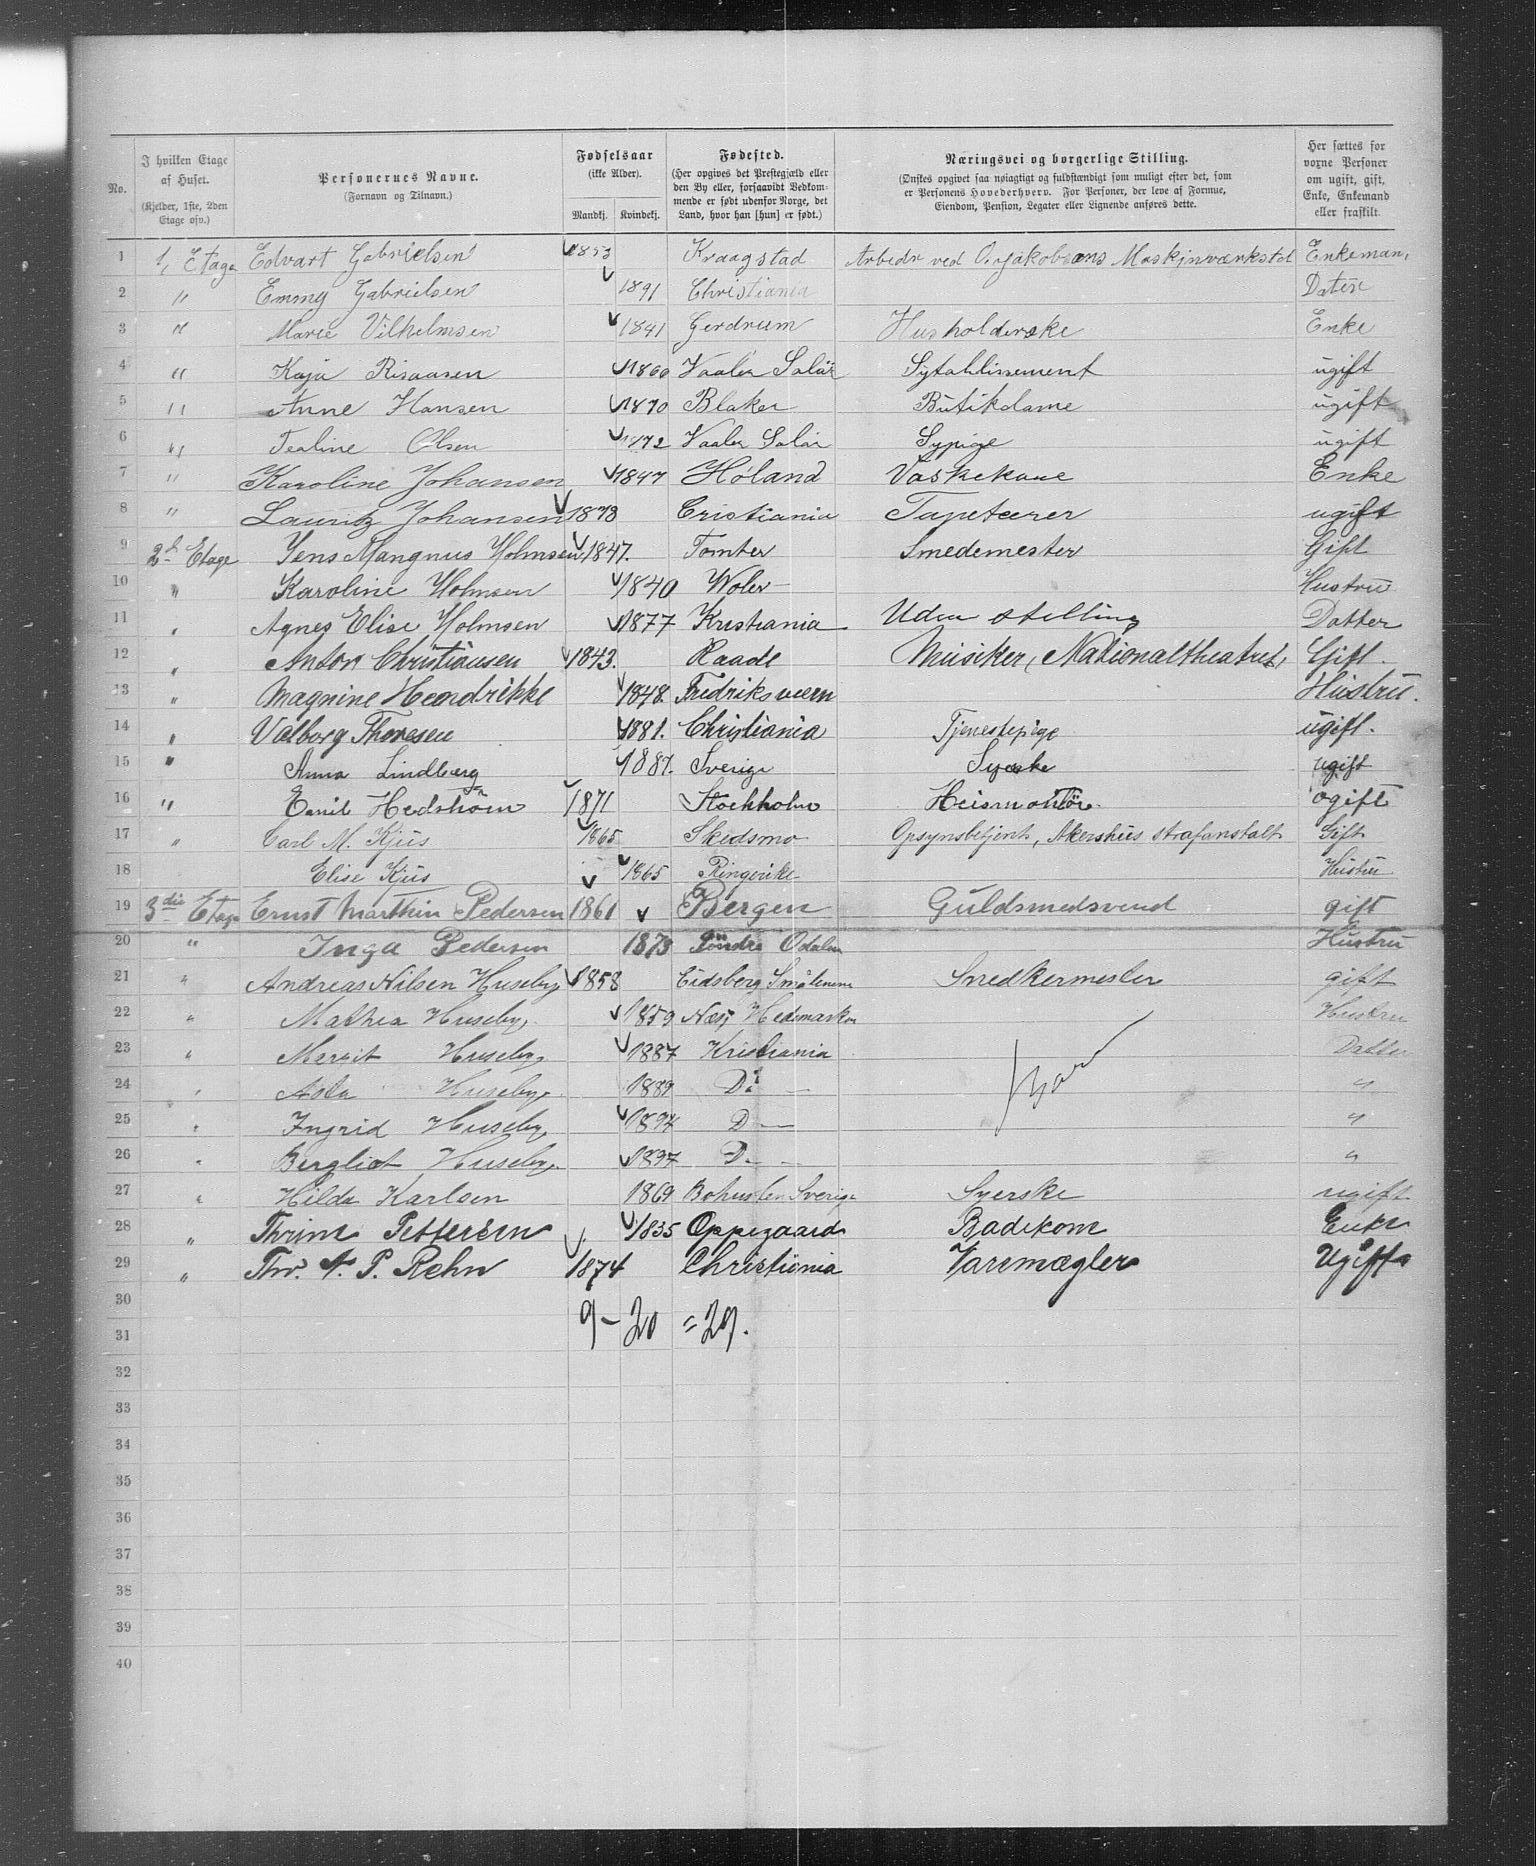 No.
I hvilken Etage af Huset. (Kjelder, 1ste, 2den Etage osv.)
Personernes Navne. (Fornavn og Tilnavn.)
Fødselsaar (ikke Alder). Mandkj. Kvindekj.
Fødested. (Her opgives det Prestegjæld eller den By eller, forsaavidt Vedkommende er født udenfor Norge, det Land, hvor han [hun] er født.)
Næringsvei og borgerlige Stilling. (Ønskes opgivet saa nøiagtigt og fuldstændigt som muligt efter det, som er Personens Hovederhverv. For Personer, der leve af Formue, Eiendom, Pension, Legater eller Lignende anføres dette.
Her sættes for voxne Personer om ugift, gift, Enke, Enkemand eller fraskilt.
1 1, Etage Edvart Gabrielsen 1853 Kraagstad Arbedr ved O. Jakobsens Maskinværksted Enkeman,
2 " Emmy Gabrielsen 1891 Christiania Dater
3 " Marie Vilhelmsen 1841 Gerdrum Husholderske Enke
4 " Kaja Risaasen 1860 Vaaler Solør Sytablissement ugift
5 " Anne Hansen 1870 Blaker Butikdame ugift
6 " Tealine Olsen 1872 Vaaler Solør Sypige ugift
7 " Karoline Johansen 1847 Høland Vaskekone Enke
8 " Lauritz Johansen 1878 Cristiania Tapetserer ugift
9 2d Etage Jens Mangnus Holmsen 1847. Tomter Smedemester Gift
10 " Karoline Holmsen 1840 Woler Hustru
11 " Agnes Elise Holmsen 1877 Kristiania Uden stelling Datter
12 " Anton Christiansen 1843. Raade Musiker, Nationaltheatret, Gift.
13 " Magnine Hendrikke 1848. Fredriksværn Hustru.
14 " Valborg Thoresen 1881. Christiania Tjenestepige ugift.
15 " Anna Lindberg 1887. Sverige Syerske ugift
16 " Emil Hedström 1871 Stockholm Heismontör ogift
17 " Carl M. Kjus 1865 Skedsmo Opsynsbetjent, Akershus strafanstalt Gift
18 Elise Kjus 1865 Ringerike Hustru
19 3die Etage Ernst Marthin Pedersen 1861 Bergen Guldsmedsvend gift
20 " Inga Pedersen 1873 Söndre Odalen Hustru
21 " Andreas Nilsen Huseby 1858 Eidsberg Smålenene Snedkermester gift
22 " Mathea Huseby 1859 Næs, Hedemarken Hustru
23 " Mervit Huseby 1887 Kristiania Datter
24 " Asla Huseby 1889 Do — "
25 " Ingrid Huseby 1894 D — "
26 " Bergliot Huseby 1897 D. — "
27 " Hilda Karlsen 1869 Bohuslen Sverige Syerske ugift
28 " Thrine Pettersen 1835 Oppegaard Badekone Enke
29 " Thv. A. P. Rehn 1874 Christiania Varemægler Ugift
30
9 - 20 = 29.
31
32
33
34
35
36
37
38
39
40